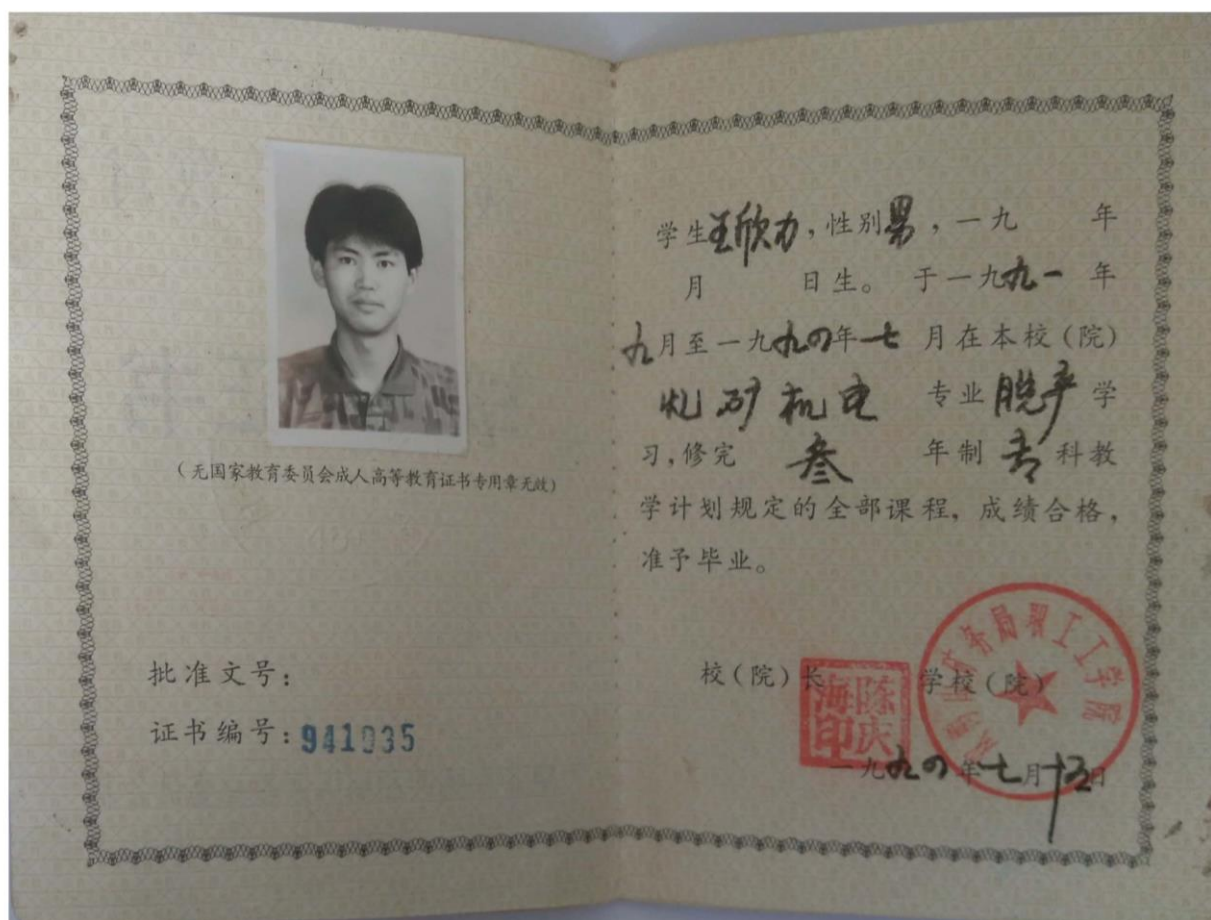 (无国家教育委员会成人高等教育证书专用章无效)
批准文号:
证书编号:941035
学生王欣力,性别男,一九 年
月 日生。 于一九九一 年
九月至一九九四年 七 月在本校(院)
矿机电 专业 脱产 学
习,修完 叁 年制 专 科教
学计划规定的全部课程, 成绩合格,
准予毕业。
校(院)长 学校(院)
陈庆海印
务局职工工学院
一九九四年七月十五日